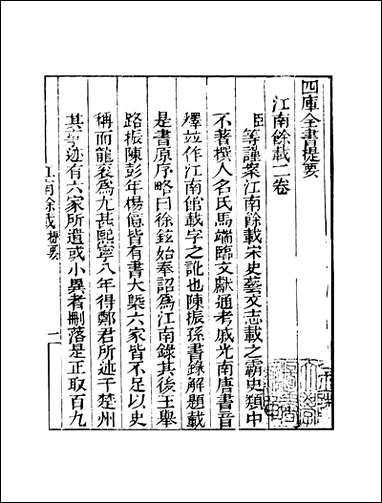 四庫全書提要
江南餘載二卷
臣等謹案江南餘載宋史藝文志載之霸史類中
不著撰人名氏馬端臨文獻通考戚光南唐書音
釋竝作江南館載字之訛也陳振孫書錄解題載
是書原序略曰徐鉉始奉詔爲江南錄其後王舉
路振陳彭年楊億皆有書大槩六家皆不足以史
稱而龍袞爲尤甚熙寧八年得鄭君所述于楚州
其事迹有六家所遺或小異者刪落是正取百九
江南餘載提要
一